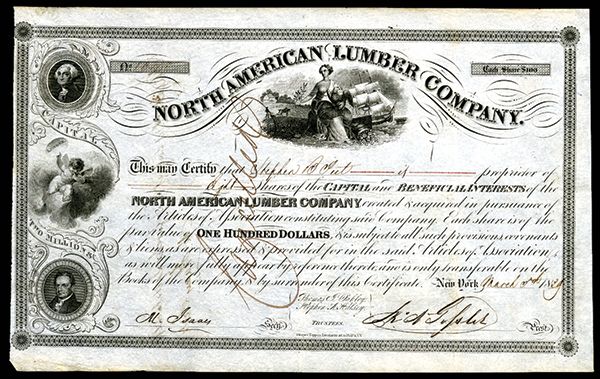 No.
Each Share $100
NORTH AMERICAN LUMBER COMPANY.
CAPITAL
TWO MILLIONS
This may Certify that Stephen is proprietor of
shares of the CAPITAL and BENEFICIAL INTERESTS of the
NORTH AMERICAN LUMBER COMPANY created & acquired in pursuance of
the Articles of Association constituting said Company. Each share is of the
par value of ONE HUNDRED DOLLARS, & is subject to all such provisions, covenants
& liens as are expressed & provided for in the said Articles of Association,
as will more fully appear by reference thereto and is only transferable on the
Books of the Company & by surrender of this Certificate. New York March 18
M. Isaacs Secy.
TRUSTEES.
Prest.